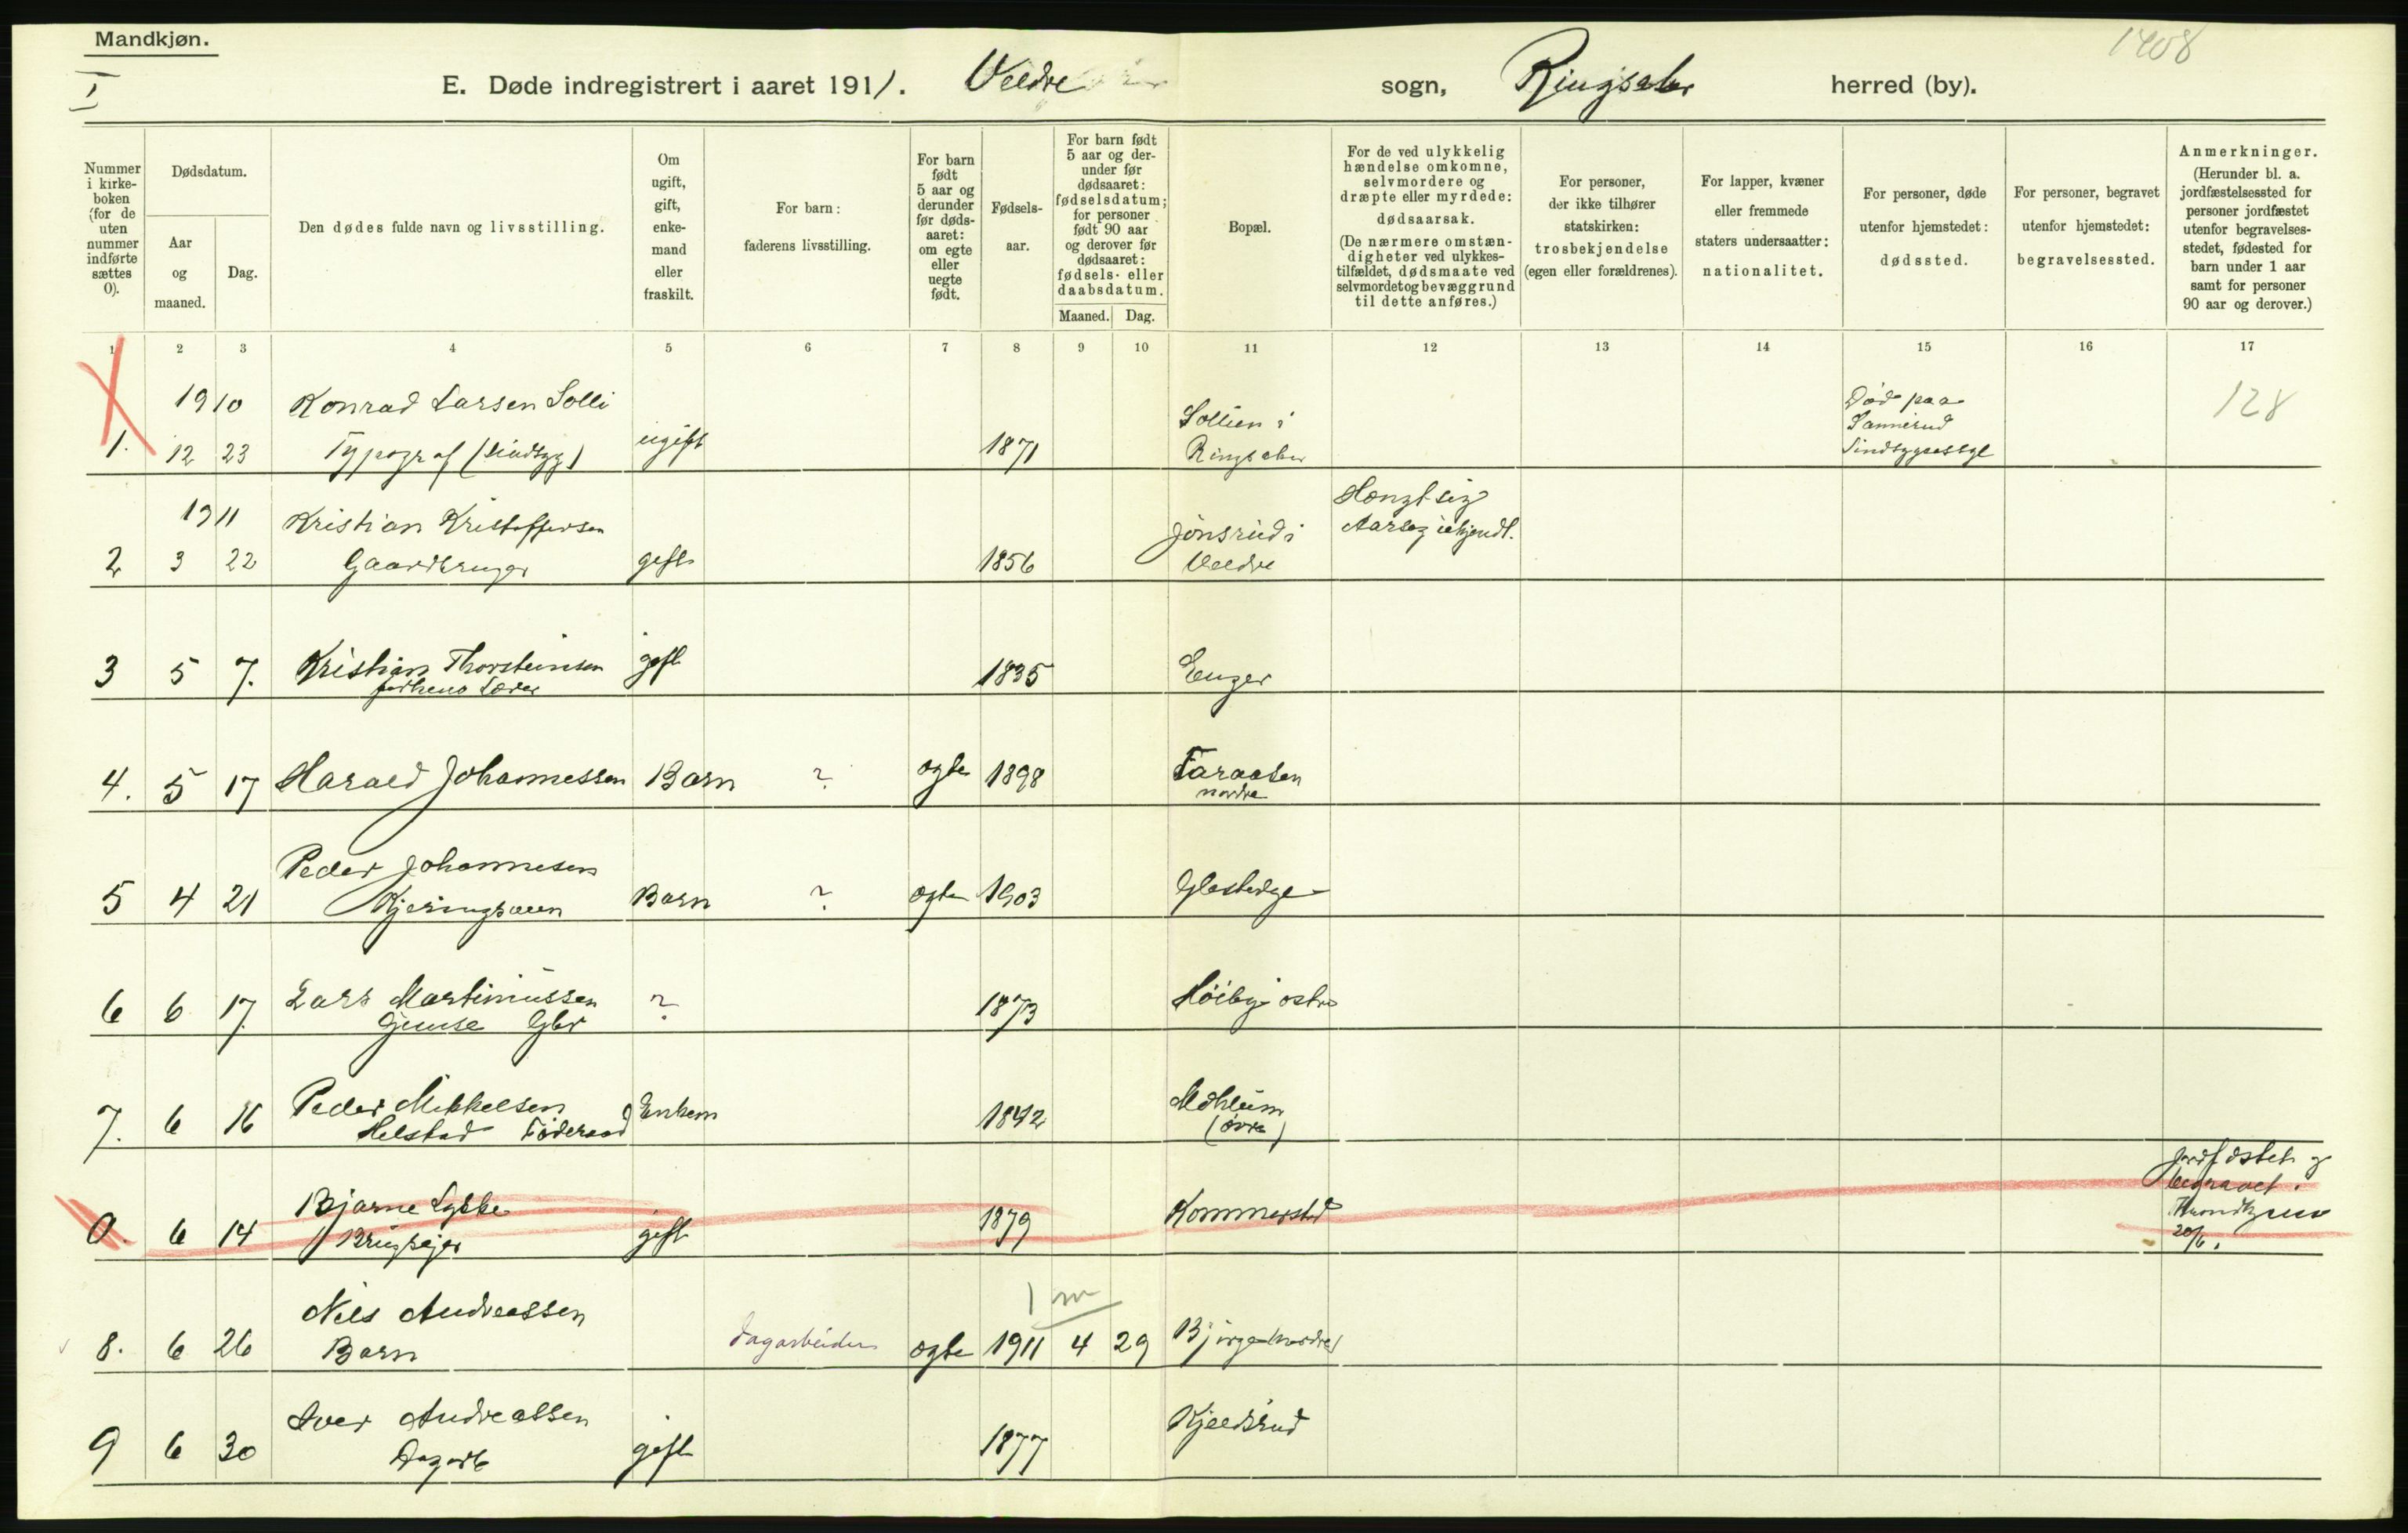 Mandkjøn.
I
1408
E. Døde indregistrert i aaret 1911. Veldre sogn, Ringsaker herred (by).
Nummer i kirke-boken (for de uten nummer indførte sættes 0).
Dødsdatum.
Aar og maaned.
Dag.
Den dødes fulde navn og livsstilling.
Om ugift, gift, enke-mand eller fraskilt.
For barn: faderens livsstilling.
For barn født 5 aar og derunder før døds-aaret: om egte eller uegte født.
Fødsels-aar.
For barn født 5 aar og der-under før dødsaaret: fødselsdatum; for personer født 90 aar og derover før dødsaaret: fødsels- eller daabsdatum.
Maaned.
Dag.
Bopæl.
For de ved ulykkelig hændelse omkomne, selvmordere og dræpte eller myrdede: dødsaarsak. (De nærmere omstæn-digheter ved ulykkes-tilfældet, dødsmaate ved selvmordet og bevæggrund til dette anføres.)
For personer, der ikke tilhører statskirken: trosbekjendelse (egen eller forældrenes).
For lapper, kvæner eller fremmede staters undersaatter: nationalitet.
For personer, døde utenfor hjemstedet: dødssted.
For personer, begravet utenfor hjemstedet: begravelsessted.
Anmerkninger. (Herunder bl. a. jordfæstelsessted for personer jordfæstet utenfor begravelses-stedet, fødested for barn under 1 aar samt for personer 90 aar og derover.)
1 2 3 4 5 6 7 8 9 10 11 12 13 14 15 16 17
1910 Konrad Larsen Solli Sollien i Død paa 128
Sannerud
1. 12 23 Typograf (sindsyg) ugift 1871 Ringsaker Sindsygeasyl
1911 Kristian Kristoffersen Jønsrud i Hængt sig
Aarsag ubekjendt.
2 3 22 Gaardbruger gift 1856 Veldre
3 5 7. Kristian Thorsteinsen gift 1835 Enger
forhenv Lærer
4. 5 17 Harald Johannessen Barn ? ægte 1898 Taraasen
nordre
Peder Johannesen
5 4 21 Barn ? ægte 1903
6 6 17. Lars Martinussen ? 1873 Høiby østre
Gbr
7. 6 16 Peder Mikkelsen Enkem 1842 Mæhlum
Helstad Føderaad (øvre)
0. 6 14 Bjarne Lykke gift 1879 Kommerstad Jordfæstet og
begravet i
Brugseier Trondhjem
20/6.
1 m
Nils Andreassen
8. 6 26 Barn Dagarbeider ægte 1911 4 29 Bjørge (nordre)
Iver Andreassen Kjeldsrud
9 6 30 Dagarb gift 1877